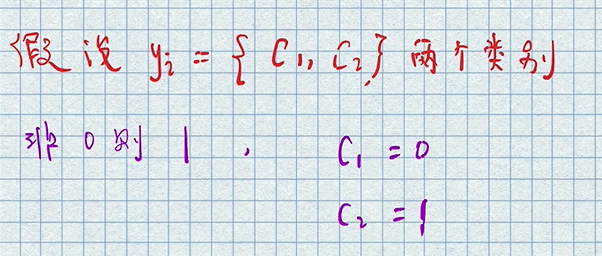 假设 yi = { C1, C2} 两个类别
非0则1, C1 = 0
C2 = 1